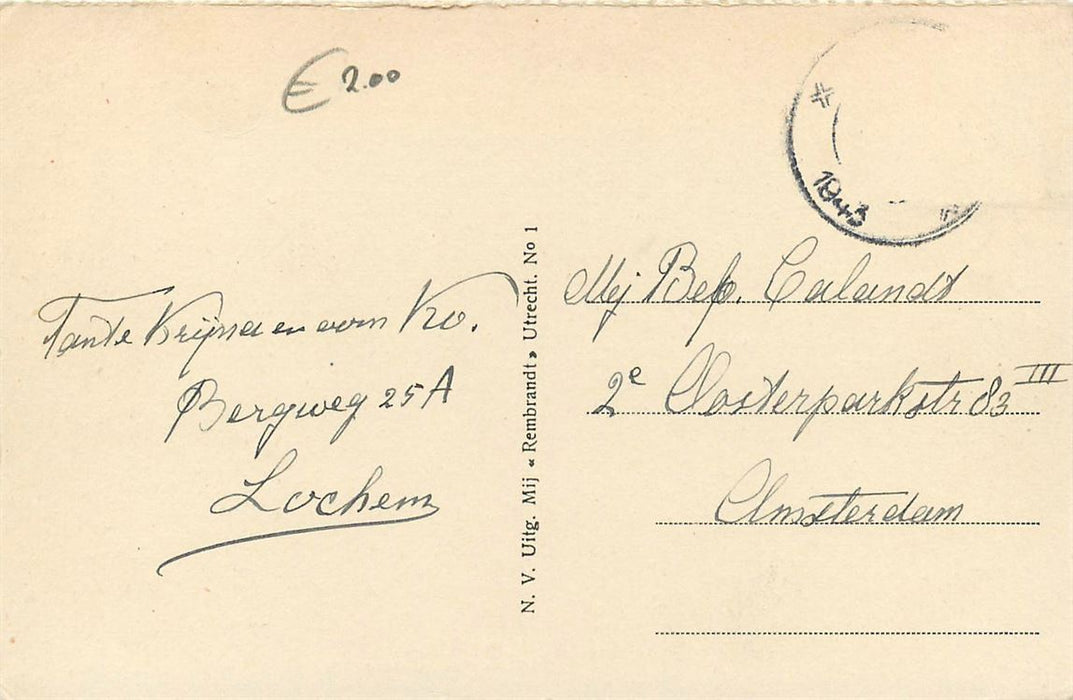 € 2.00
1943
Tante Krijna en oom Ko.
Bergweg 25A
Lochem
N. V. Uitg. Mij « Rembrandt » Utrecht. No 1
Mej Bep. Calandt
2e Oosterparkstr 83 III
Amsterdam